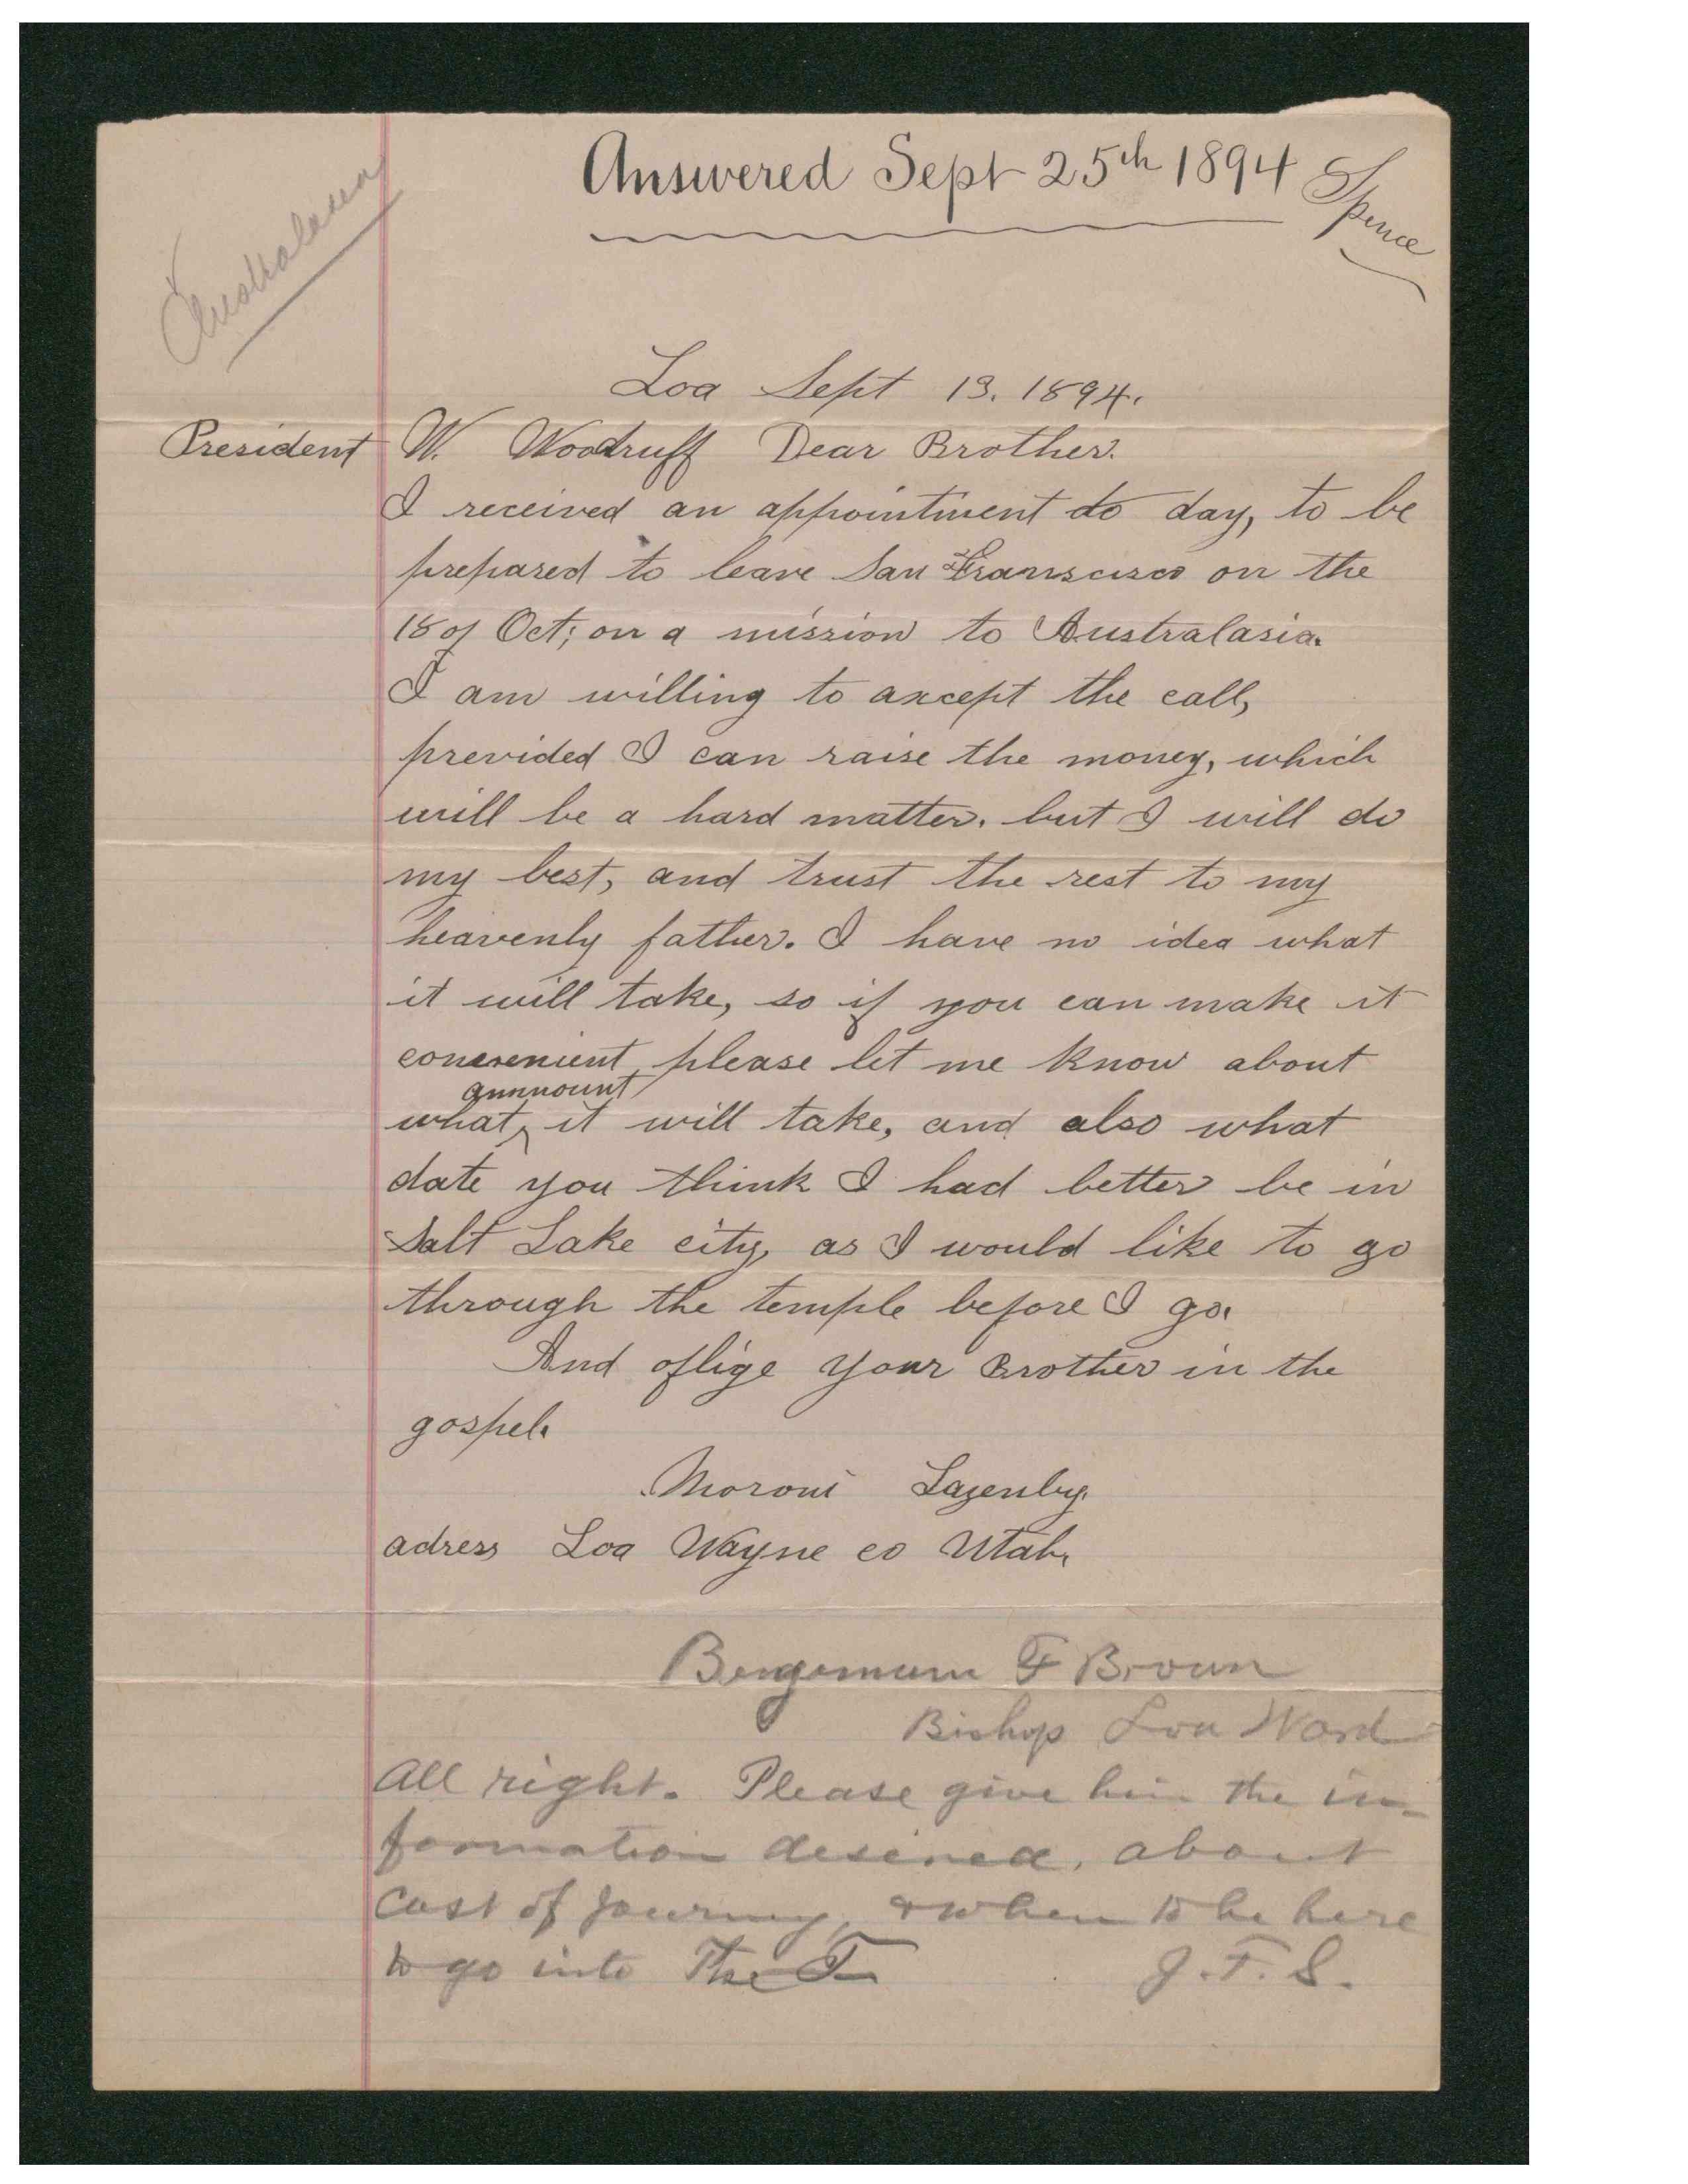 Answered Sept 25th 1894
Spence
Australasia
Loa Sept 13. 1894.
President W. Woodruff Dear Brother.
I received an appointment to day, to be
prepared to leave San Franscisco on the
18 of Oct; on a mission to Australasia.
I am willing to axcept the call,
previded I can raise the money, which
will be a hard matter. but I will do
my best, and trust the rest to my
heavenly father. I have no idea what
it will take, so if you can make it
convenient, please let me know about
ammount
what it will take, and also what
date you think I had better be in
Salt Lake city, as I would like to go
through the temple before I go.
And oflige your Brother in the
gospel.
Moroni Lazenby.
adress Loa Wayne co Utah.
Bengemum F Brown
Bishop Loa Ward
All right. Please give him the in-
formation desired, about
cost of journey, & when to be here
to go into The T—
J. F. S.